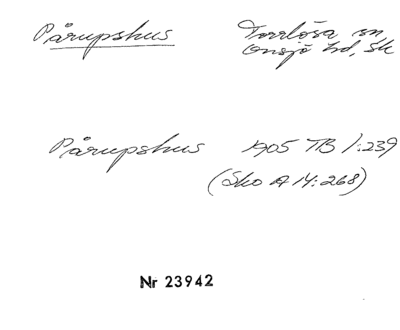 Pårupshus
Torrlösa sn
Onsjö hd, Sk
Pårupshus 1905 TB 1:239
(Sko A 14:268)
Nr 23942